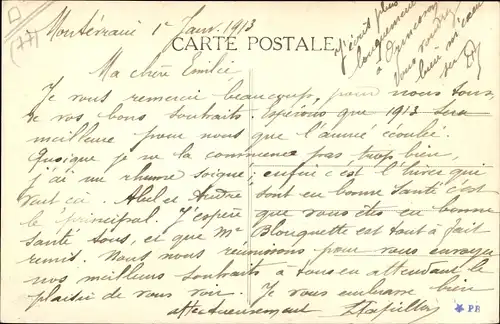 1er Janv. 1913
CARTE POSTALE
J'écris plus
longuement
à
vous voudrez
bien m'excu
ser
Ma chère Emilie,
Je vous remercie beaucoup, pour nous tous
de vos bons souhaits. Espérons que 1913 sera
meilleure pour nous que l'année écoulée.
Quoique je ne la commence pas trop bien,
j'ai un rhume soigné; enfin c'est l'hiver qui
veut ça. Abel et André sont en bonne santé c'est
le principal. J'espère que vous êtes en bonne
santé tous, et que Mr Blouquette est tout à fait
remis. Nous nous réunissons pour vous envoyer
nos meilleurs souhaits à tous en attendant le
plaisir de vous voir. Je vous embrasse bien
affectueusement
PF